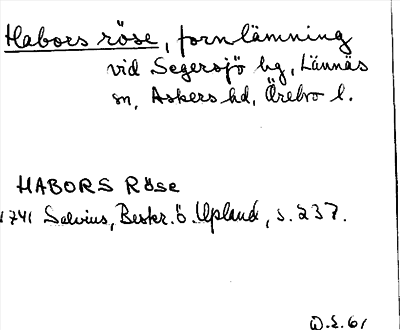 Habors röse, fornlämning
vid Segersjö hg, Lännäs
sn, Askers hd, Örebro l.
HABORS Röse
1741 Salvius, Beskr. ö. Upland, s. 237.
D.S. 61